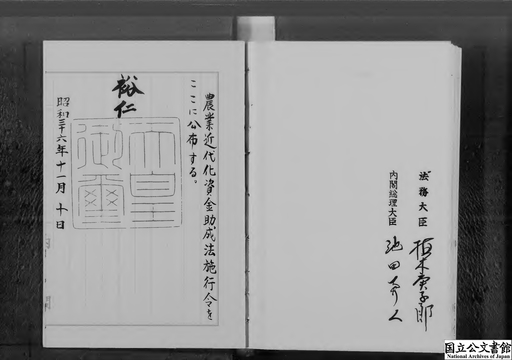 農業近代化資金助成法施行令を
ここに公布する。
裕仁
天皇
御璽
昭和三十六年十一月十日
法務大臣 植木庚子郎
内閣総理大臣 池田勇人
国立公文書館
National Archives of Japan